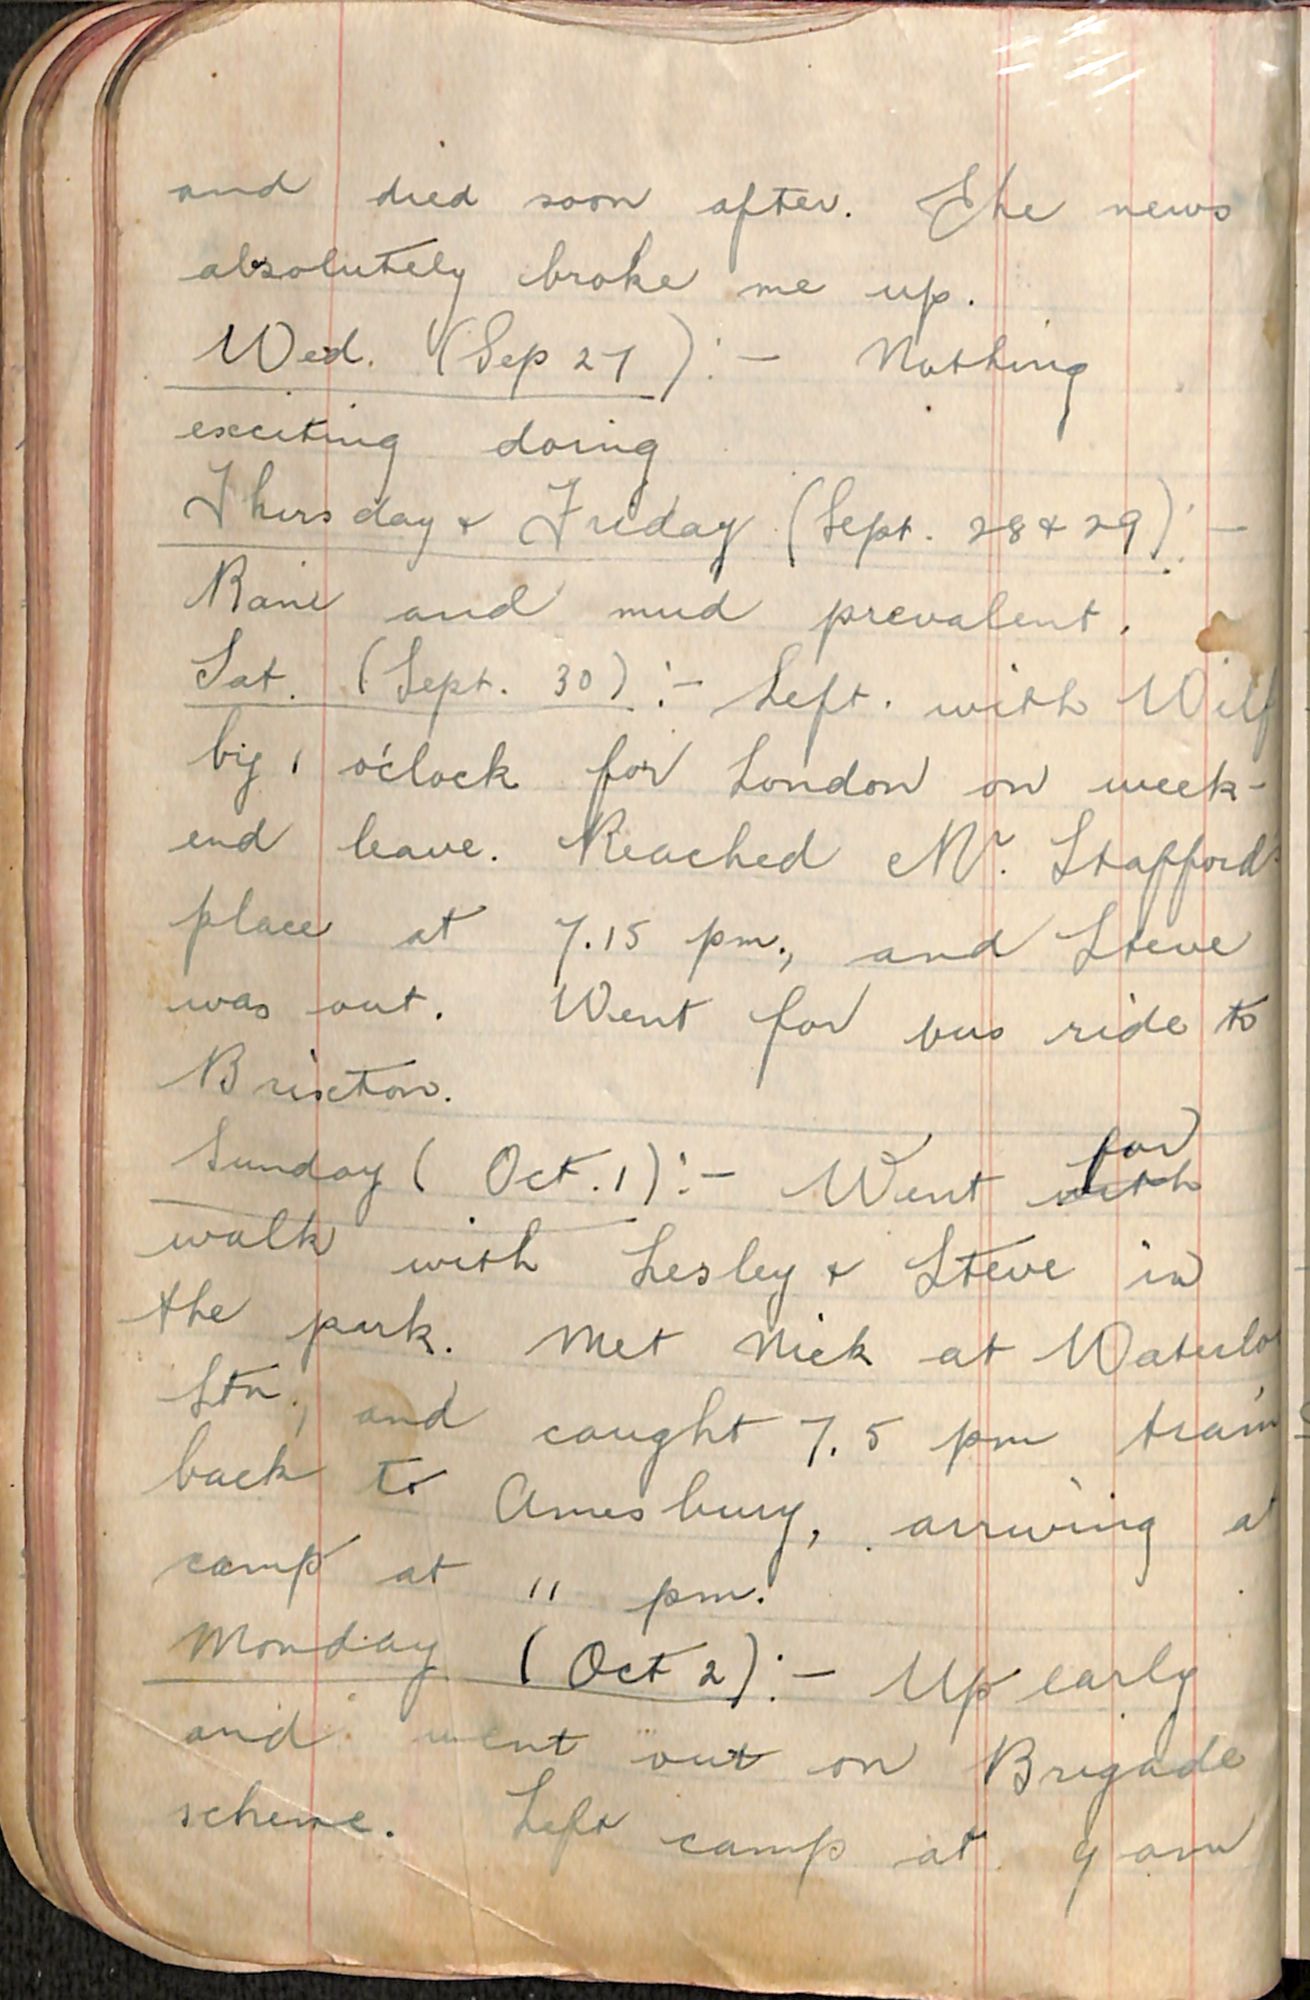 and died soon after. The news
absolutely broke me up.
Wed. (Sep 27):-  Nothing
exciting doing
Thursday & Friday (Sept. 28 & 29):-
Rain and mud prevalent.
Sat. (Sept. 30):- Left. with Wilf
by 1 o'clock for London on week-
end leave. Reached Mr. Stafford's
place at 7.15 pm., and Steve
was out. Went for bus ride to
Brixton.
Sunday (Oct. 1):- Went with for
walk with Lesley & Steve in
the park. Met Nick at Waterloo
Stn., and caught 7.5 pm train
back to Amesbury, arriving at
camp at 11 pm.
Monday (Oct 2):- Up early
and went out on Brigade
scheme. Left camp at 9 am